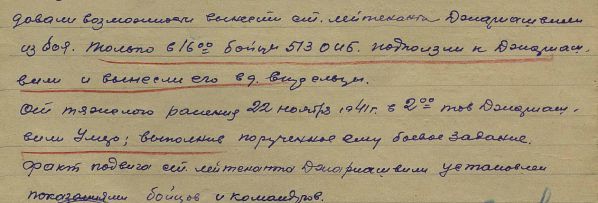 довали возможности вынести ст. лейтенанта Джариашвили
из боя. Только в 16⁰⁰ бойцы 513 оиб. подползли к Джариаш-
вили и вынесли его в д.
От тяжелого ранения 22 ноября 1941г. в 2⁰⁰ тов Джариаш-
вили умер; выполнив порученное ему боевое задание.
Факт подвига ст. лейтенанта Джариашвили установлен
показаниями бойцов и командиров.